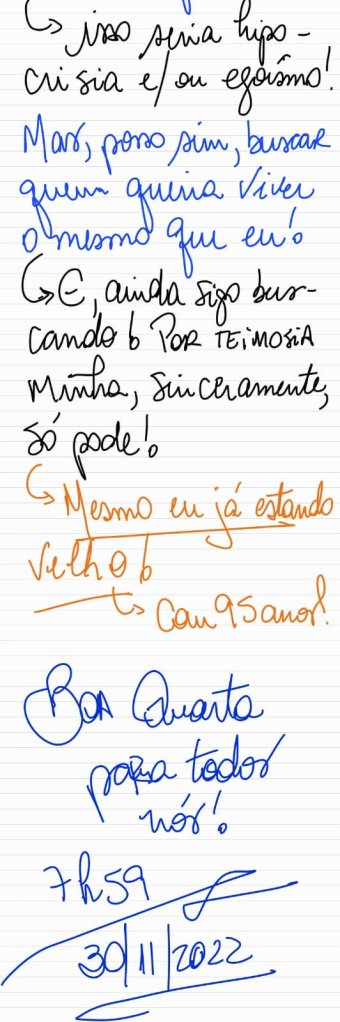 ↳ isso seria hipo-
crisia e/ou egoísmo!
Mas, posso sim, buscar
quem queira viver
o mesmo que eu!
↳ E, ainda sigo bus-
cando! POR TEIMOSIA
Minha, sinceramente,
só pode!
↳ Mesmo eu já estando
velho!
↳ Com 95 anos!
Boa Quarta
para todos
nós!
7h59
30/11/2022